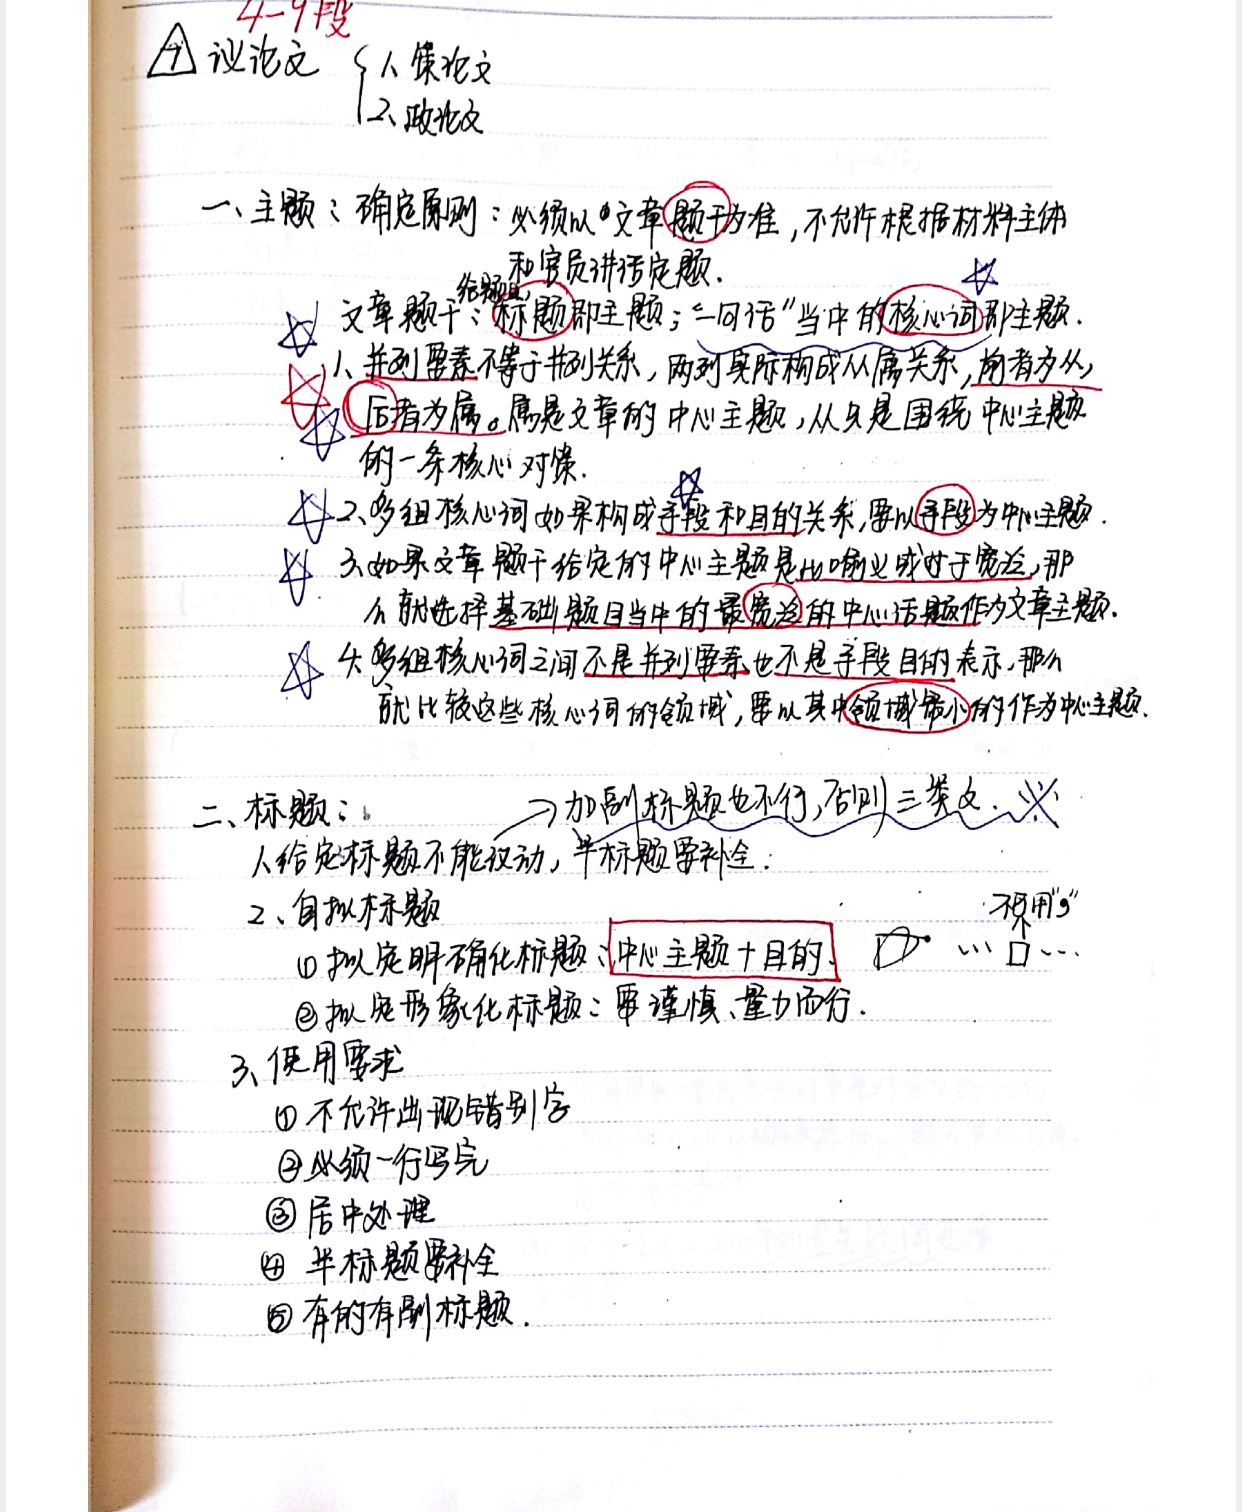 4-9段
议论文
1、策论文
2、政论文
一、主题：确定原则：必须以文章题干为准，不允许根据材料主体
和官员讲话定题.
给题目,
文章题干：标题即主题；“一句话”当中的核心词即主题.
1、并列要素不等于并列关系，两列实际构成从属关系,前者为从,
后者为属。属是文章的中心主题，从只是围绕中心主题
的一条核心对策.
2、多组核心词如果构成手段和目的关系,要以手段为中心主题.
3、如果文章题干给定的中心主题是比喻义或过于宽泛,那
么就选择基础题目当中的最宽泛的中心话题作为文章主题.
4、多组核心词之间不是并列要素也不是手段目的表示,那么
就比较这些核心词的领域,要以其中领域最小的作为中心主题.
二、标题：
→加副标题也不行,否则三类文.※
1、给定标题不能改动,半标题要补全.
2、自拟标题
不用“,”
①拟定明确化标题：中心主题+目的. …□…
②拟定形象化标题：要谨慎、量力而行.
3、使用要求
①不允许出现错别字
②必须一行写完
③居中处理
④半标题要补全
⑤有的有副标题.